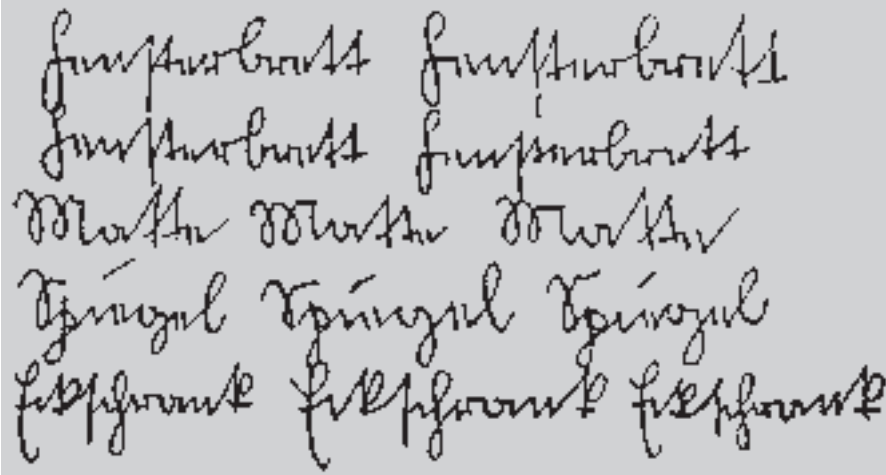 Fensterbrett Fensterbrett
Fensterbrett Fensterbrett
Matte Matte Matte
Spiegel Spiegel Spiegel
Eckschrank Eckschrank Eckschrank